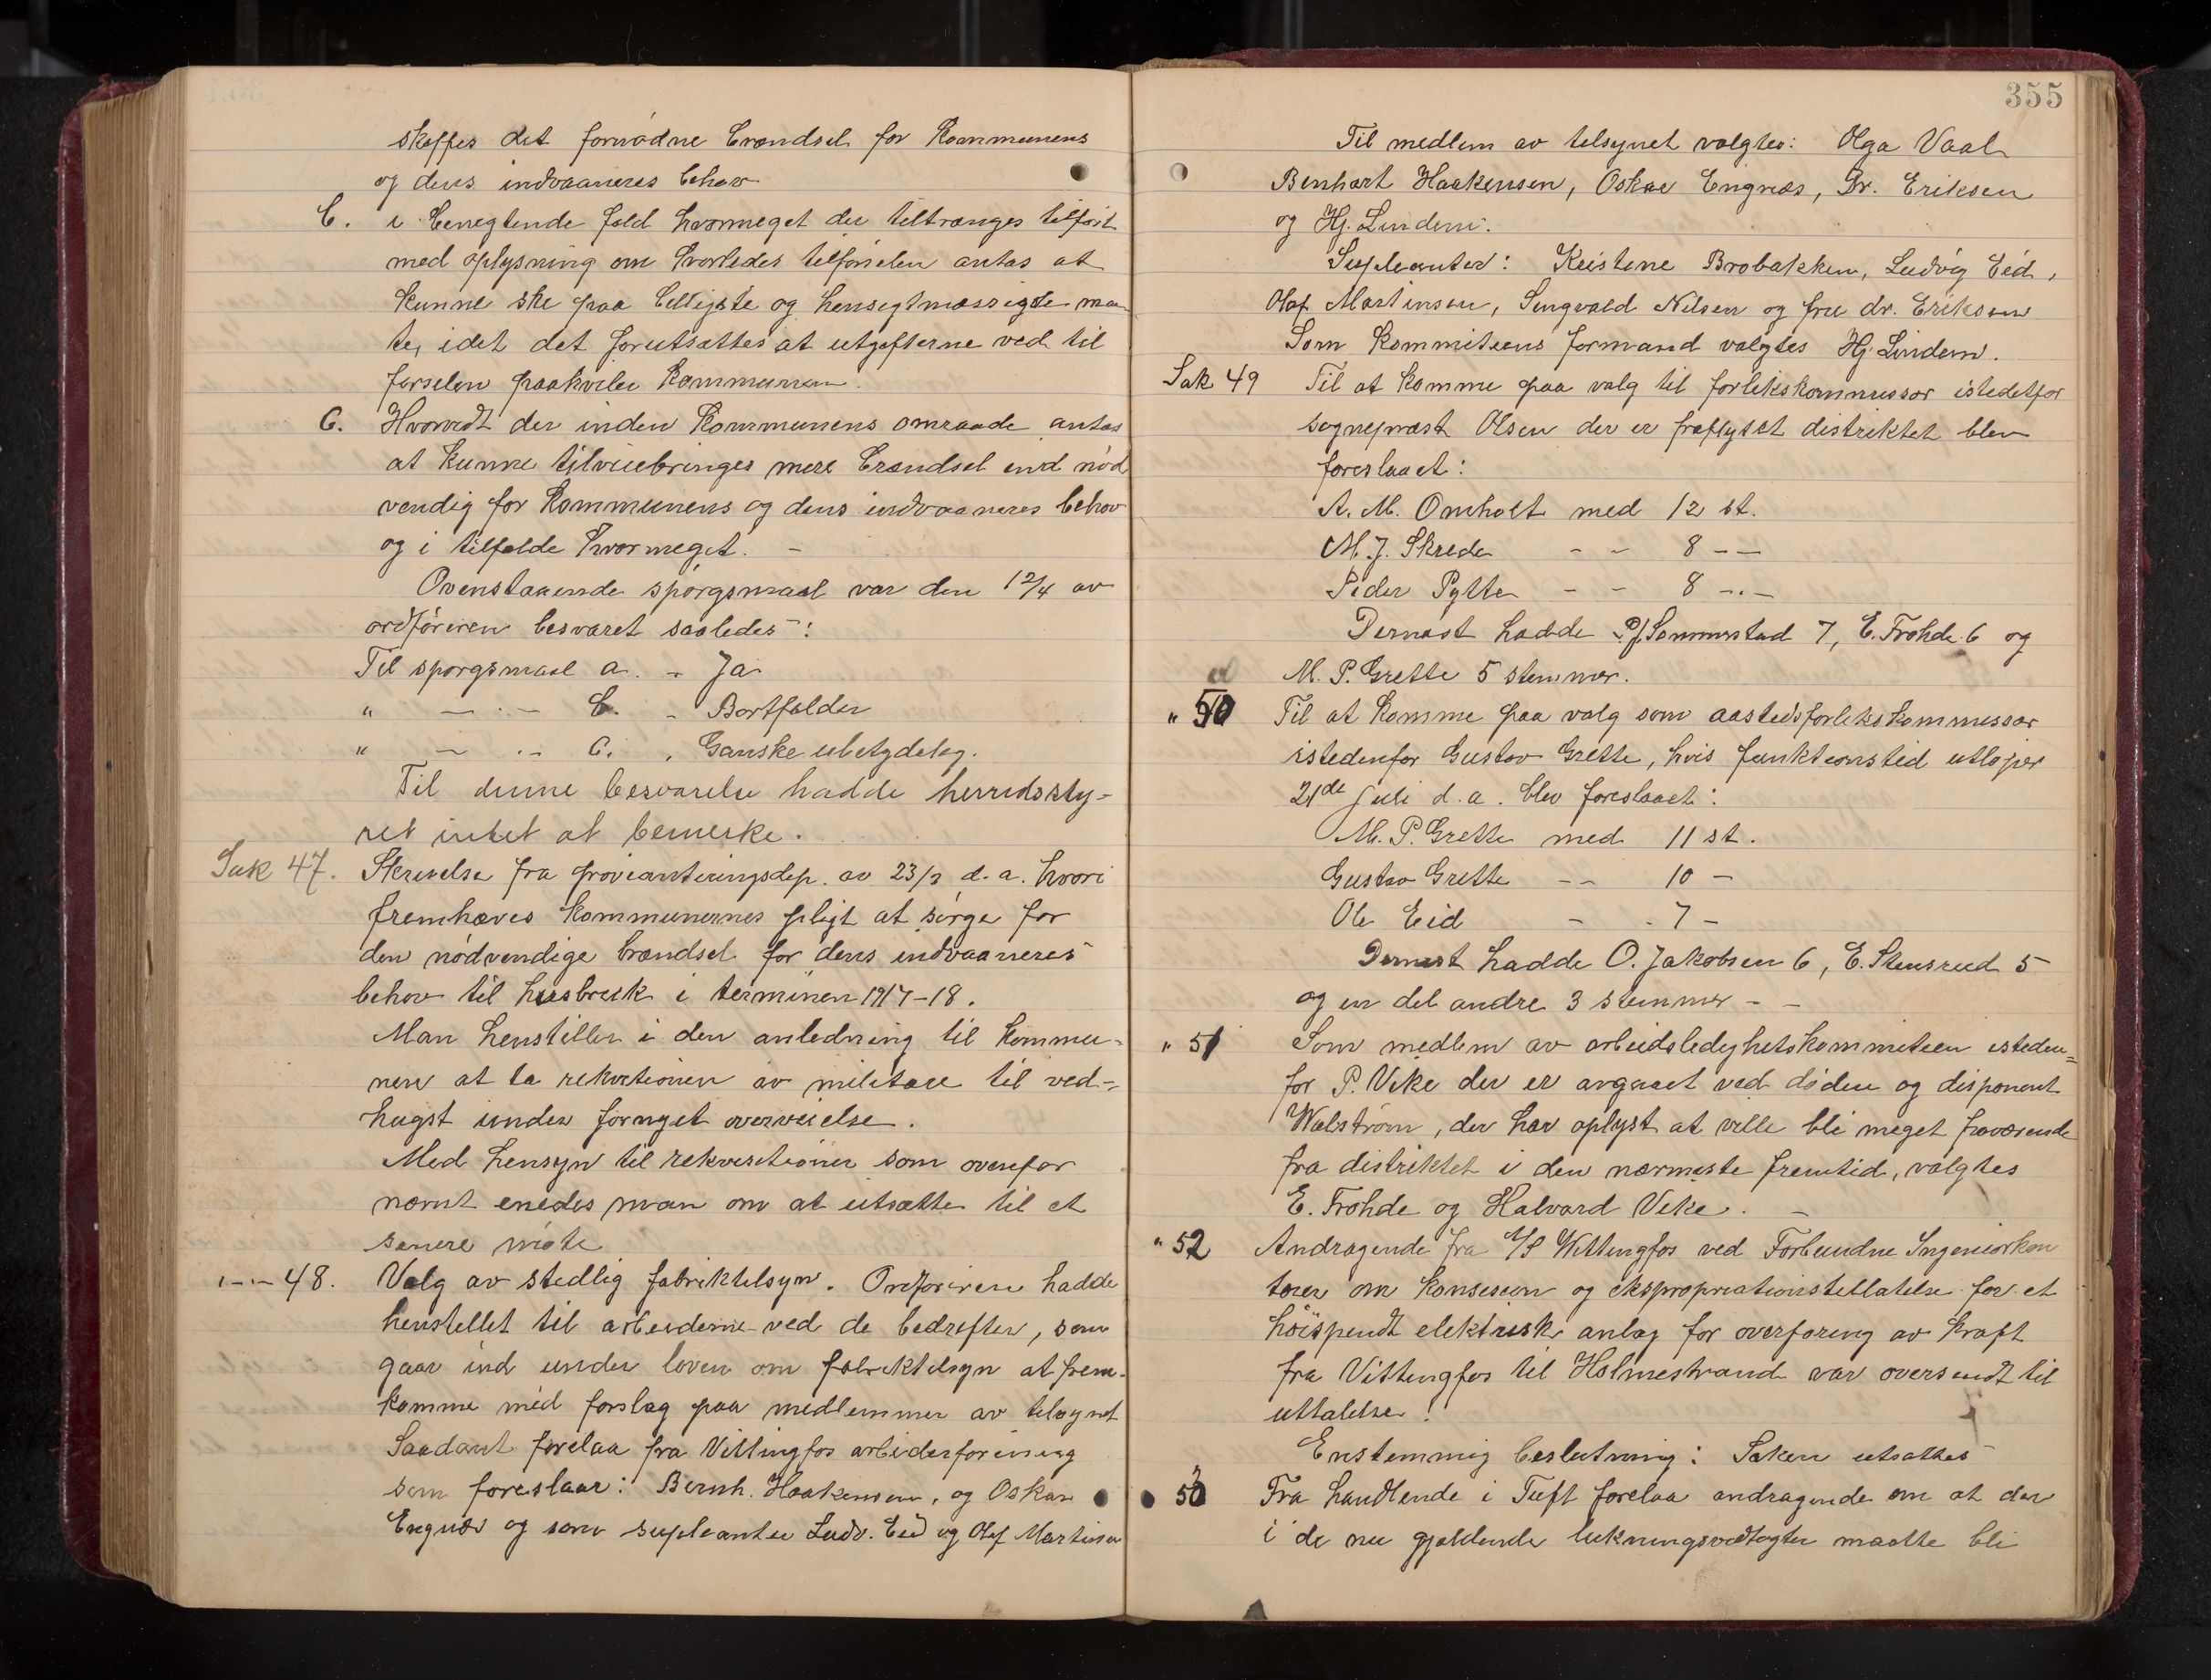 skaffes det fornødne brændsel for kommunens
og dens indvaaneres behov
b. i benegtende fald hvormeget der tiltrænges tilført
med oplysning om hvorledes tilførselen antas at
kunne ske paa billigste og hensigtmæssigste maa
te, idet det forutsættes at utgifterne ved til
førselen paahviler kommunen.
c. Hvorvidt der inden kommunens omraade antas
at kunne tilveiebringes mere brændsel end nød
vendig for kommunens og dens indvaaneres behov
og i tilfælde hvormeget. -
Ovenstaaende spørgsmaal var den 12/4 av
ordføreren besvaret saaledes:
Til spørgsmaal a. - Ja
" - . - b. - Bortfalder
" - . - c. . Ganske ubetydelig.
Til denne besvarelse hadde herredssty-
ret intet at bemerke.
Sak 47. Skrivelse fra provianteringsdep. av 23/3 d.a. hvori
fremhæves kommunernes pligt at sørge for
den nødvendige brændsel for dens indvaaneres
behov til husbruk i terminen 1917-18.
Man henstiller i den anledning til kommu-
nene at ta rekvisitionen av militære til ved-
hugst under fornyet overveielse.
Med hensyn til rekvisitioner som ovenfor
nævnt enedes man om at utsætte til et
senere møte
" - " - 48. Valg av stedlig fabriktilsyn. Ordføreren hadde
henstillet til arbeiderne ved de bedrifter, som
gaar ind under loven om fabriktilsyn at frem-
komme med forslag paa medlemmer av tilsynet
Saadant forelaa fra Vittingfos arbeiderforening
som foreslaar: Bernh. Haakensen, og Oskar
Engnæs og som supleanter Ludv. Eid og Olaf Martinsen
355
Til medlem av tilsynet valgtes: Olga Vaal
Benhart Haakensen, Oskar Engnæs, Dr. Eriksen
og Hj. Lindem.
Supleanter: Kristine Brobakken, Ludvig Eid,
Olaf Martinsen, Singvald Nilsen og fru dr. Eriksen
Som kommiteens formand valgtes Hj. Lindem.
Sak 49 Til at komme paa valg til forlikskommissær istedetfor
sogneprest Olsen der er fraflyttet distriktet blev
foreslaaet:
A. M. Omholt med 12 st.
M. J. Skrede - - 8 - -
Peder Pytte - - 8 -.-
Dernæst hadde P. J. Sommerstad 7, E. Frohde 6 og
M. P. Grette 5 stemmer.
" 50 Til at komme paa valg som aastedsforlikskommissær
istedenfor Gustav Grette, hvis funktionstid utløper
21de juli d.a. blev foreslaaet:
M. P. Grette med 11 st.
Gustav Grette - - 10 -
Ole Eid - - 7 -
Dernæst hadde O. Jakobsen 6, E. Stensrud 5
og en del andre 3 stemmer - -
" 51 Som medlem av arbeidsledighetskommiteen isteden=
for P. Vike der er avgaaet ved døden og disponent
Walstrøm, der har oplyst at ville bli meget fraværende
fra distriktet i den nærmeste fremtid, valgtes
E. Frohde og Halvard Vike. -
" 52 Andragende fra A/S Wittingfos ved Forbundne Ingeniørkon
torer om konsesion og ekspropriationstillatelse for et
høispendt elektrisk anlæg for overføring av kraft
fra Vittingfos til Holmestrand var oversendt til
uttalelse.
Enstemmig beslutning: Saken utsættes
" 53 Fra handlende i Tuft forelaa andragende om at der
i de nu gjældende lukningsvedtægter maatte bli